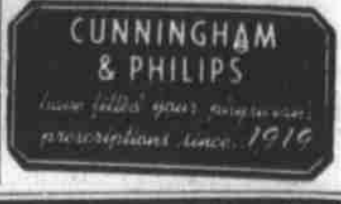 CUNNINGHAM
& PHILIPS
have filled your physicians'
prescriptions since..1919